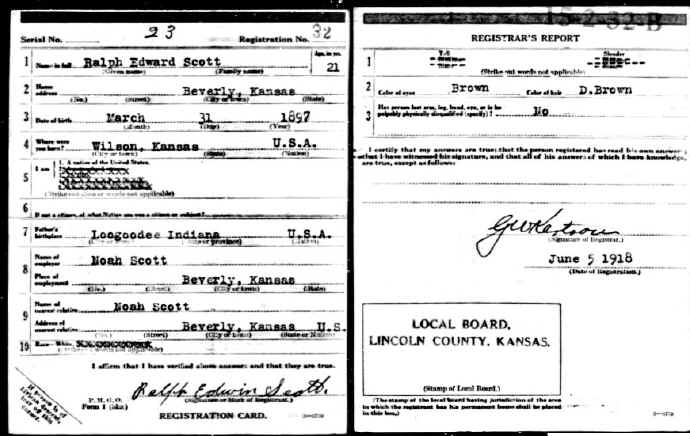 Serial No. 23 Registration No. 32
1 Name in full Ralph Edward Scott Age, in yrs. 21
(Given name) (Family name)
2 Home address Beverly, Kansas
(No.) (Street) (City or town) (State)
3 Date of birth March 31 1897
(Month) (Day) (Year)
4 Where were you born? Wilson, Kansas U.S.A.
(City or town) (State) (Nation)
5 I am 1. A native of the United States.
(Strike out lines or words not applicable)
6 If not a citizen, of what Nation are you a citizen or subject?
7 Father's birthplace Loogoodee Indiana U.S.A.
(City or town) (State or province) (Nation)
8 Name of employer Noah Scott
Place of employment Beverly, Kansas
(No.) (Street) (City or town) (State)
9 Name of nearest relative Noah Scott
Address of nearest relative Beverly, Kansas U.S.
(No.) (Street) (City or town) (State or Nation)
10 Race—White
I affirm that I have verified above answers and that they are true.
P. M. G. O.
Form 1 (blue)
Ralph Edwin Scott.
(Signature or mark of Registrant.)
REGISTRATION CARD.
If person is of African descent, tear off this corner.
15-2-32-B
REGISTRAR'S REPORT
1 Slender
(Strike out words not applicable)
2 Color of eyes Brown Color of hair D.Brown
3 Has person lost arm, leg, hand, eye, or is he palpably physically disqualified (specify)? No
I certify that my answers are true; that the person registered has read his own answers
that I have witnessed his signature, and that all of his answers of which I have knowledge
are true, except as follows:
(Signature of Registrar.)
June 5 1918
(Date of Registration.)
LOCAL BOARD,
LINCOLN COUNTY, KANSAS.
(Stamp of Local Board.)
(The stamp of the local board having jurisdiction of the area
in which the registrant has his permanent home shall be placed
in this box.)